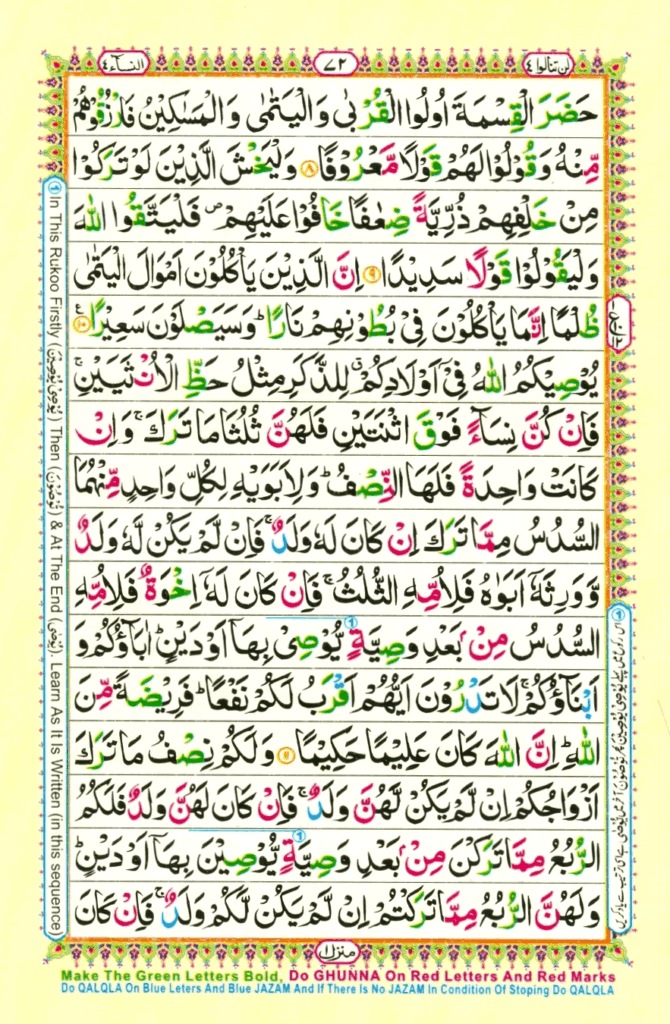 النسآء ٤
٧٢
لن تنالوا ٤
حَضَرَ الْقِسْمَةَ اُولُوا الْقُرْبٰى وَالْيَتٰمٰى وَالْمَسٰكِيْنُ فَارْزُقُوْهُمْ
مِّنْهُ وَقُوْلُوْا لَهُمْ قَوْلًا مَّعْرُوْفًا ۝۸ وَلْيَخْشَ الَّذِيْنَ لَوْ تَرَكُوْا
مِنْ خَلْفِهِمْ ذُرِّيَّةً ضِعٰفًا خَافُوْا عَلَيْهِمْ ۖ فَلْيَتَّقُوا اللّٰهَ
وَلْيَقُوْلُوْا قَوْلًا سَدِيْدًا ۝۹ اِنَّ الَّذِيْنَ يَاْكُلُوْنَ اَمْوَالَ الْيَتٰمٰى
ظُلْمًا اِنَّمَا يَاْكُلُوْنَ فِيْ بُطُوْنِهِمْ نَارًا ؕ وَسَيَصْلَوْنَ سَعِيْرًا ۝۱۰ ع
يُوْصِيْكُمُ اللّٰهُ فِيْٓ اَوْلَادِكُمْ ۗ لِلذَّكَرِ مِثْلُ حَظِّ الْاُنْثَيَيْنِ ۚ
فَاِنْ كُنَّ نِسَآءً فَوْقَ اثْنَتَيْنِ فَلَهُنَّ ثُلُثَا مَا تَرَكَ ۚ وَاِنْ
كَانَتْ وَاحِدَةً فَلَهَا النِّصْفُ ؕ وَلِاَبَوَيْهِ لِكُلِّ وَاحِدٍ مِّنْهُمَا
السُّدُسُ مِمَّا تَرَكَ اِنْ كَانَ لَهٗ وَلَدٌ ۚ فَاِنْ لَّمْ يَكُنْ لَّهٗ وَلَدٌ
وَّوَرِثَهٗٓ اَبَوٰهُ فَلِاُمِّهِ الثُّلُثُ ۚ فَاِنْ كَانَ لَهٗٓ اِخْوَةٌ فَلِاُمِّهِ
السُّدُسُ مِنْۢ بَعْدِ وَصِيَّةٍ يُّوْصِيْ بِهَآ اَوْ دَيْنٍ ؕ اٰبَآؤُكُمْ وَ
اَبْنَآؤُكُمْ ۚ لَا تَدْرُوْنَ اَيُّهُمْ اَقْرَبُ لَكُمْ نَفْعًا ؕ فَرِيْضَةً مِّنَ
اللّٰهِ ؕ اِنَّ اللّٰهَ كَانَ عَلِيْمًا حَكِيْمًا ۝۱۱ وَلَكُمْ نِصْفُ مَا تَرَكَ
اَزْوَاجُكُمْ اِنْ لَّمْ يَكُنْ لَّهُنَّ وَلَدٌ ۚ فَاِنْ كَانَ لَهُنَّ وَلَدٌ فَلَكُمُ
الرُّبُعُ مِمَّا تَرَكْنَ مِنْۢ بَعْدِ وَصِيَّةٍ يُّوْصِيْنَ بِهَآ اَوْ دَيْنٍ ؕ
وَلَهُنَّ الرُّبُعُ مِمَّا تَرَكْتُمْ اِنْ لَّمْ يَكُنْ لَّكُمْ وَلَدٌ ۚ فَاِنْ كَانَ
In This Rukoo Firstly (يُوْصِيْ يُوْصِيْنَ) Then (تُوْصُوْنَ) & At The End (يُوْصٰى). Learn As It Is Written (in this sequence)
منزل ۱
Make The Green Letters Bold, Do GHUNNA On Red Letters And Red Marks
Do QALQLA On Blue Leters And Blue JAZAM And If There Is No JAZAM In Condition Of Stoping Do QALQLA